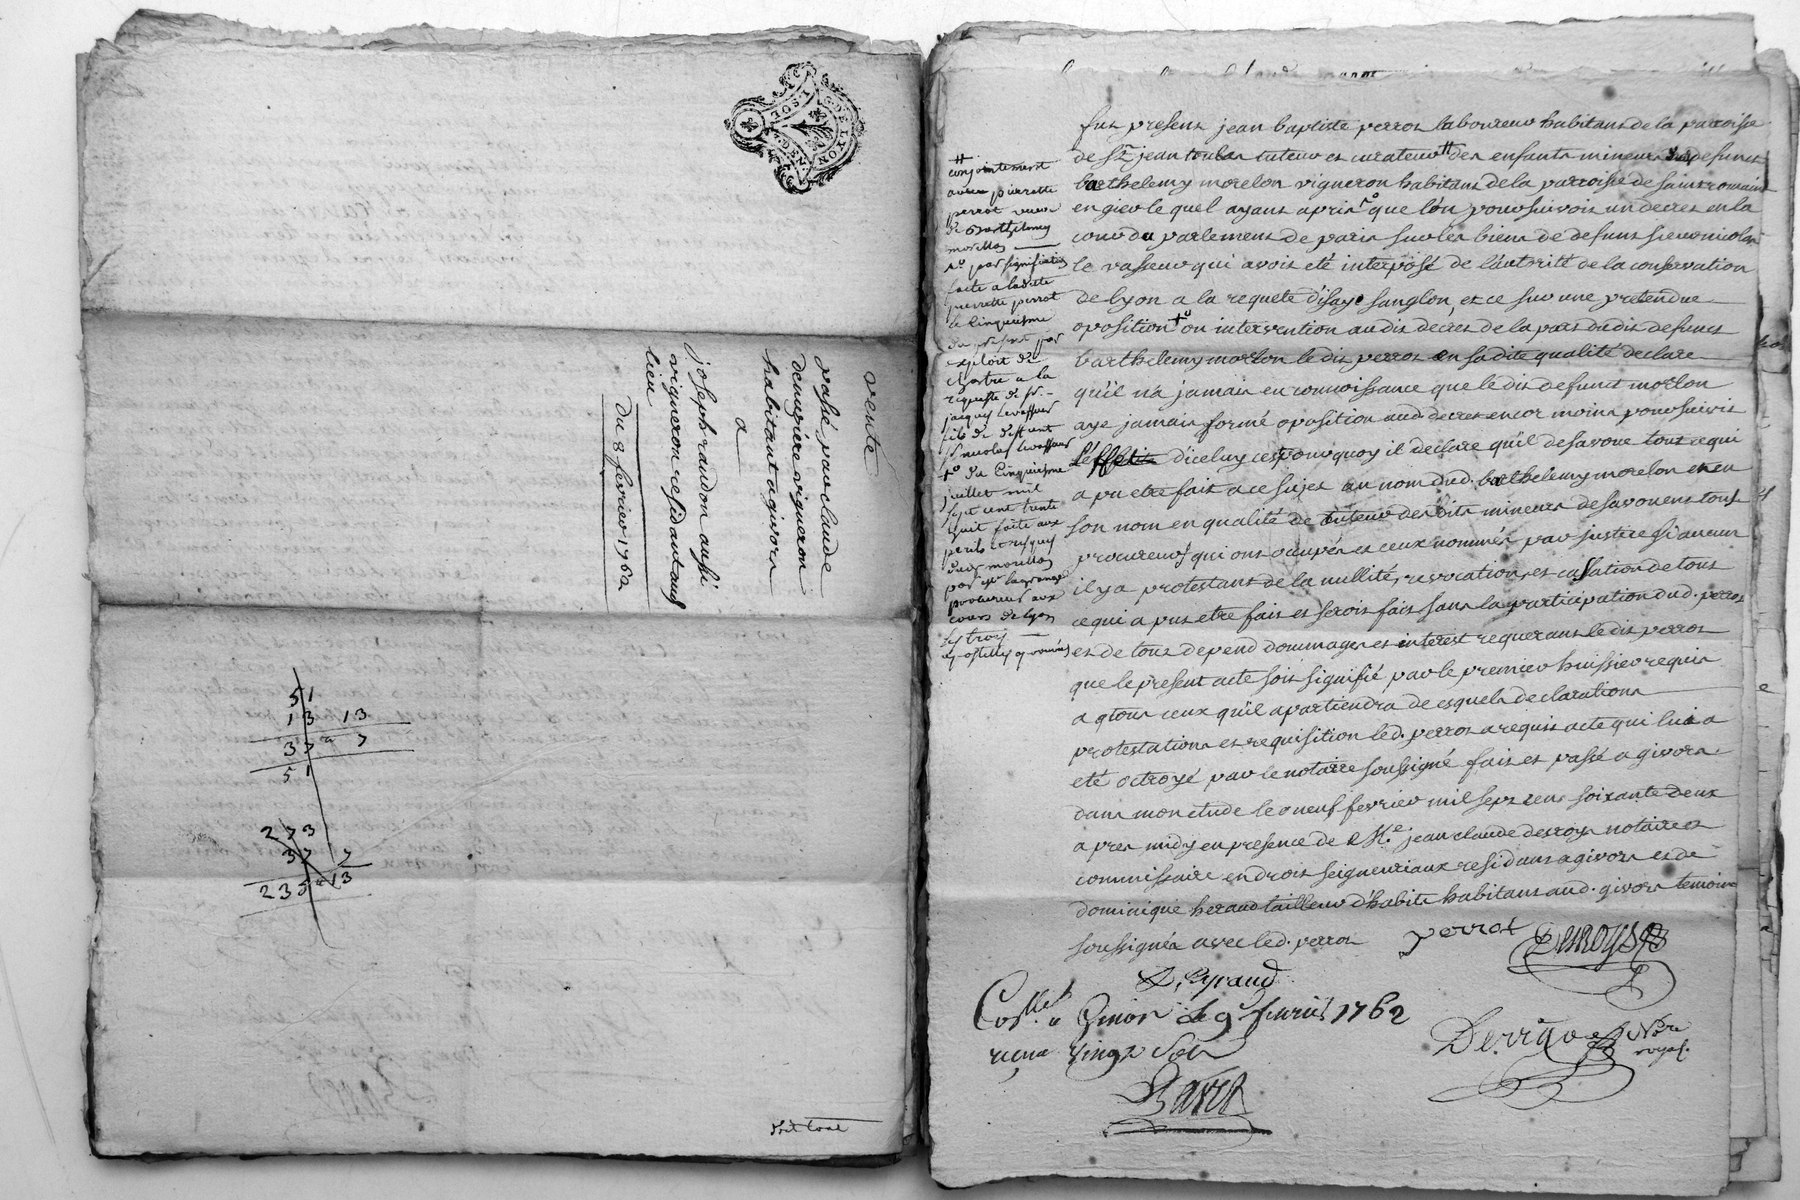 G. DE LYON
1. SOL.
4. DEN.
vente
passé par claude
denuziere vigneron
habitant a givors
a
joseph randon aussi
vigneron residant aud
lieu
Du 8 fevrier 1762
51
13 13
37 a 7
51
273
37 7
235 a 13
fut present jean baptiste perrot laboureur habitant de la parroisse
de St jean toulas tuteur et curateur # des enfants mineurs de defunct
barthelemy morelon vigneron habitant de la parroisse de saint romain
en gier le quel ayant apris que l'on poursuivoit un decret en la
cour du parlement de paris sur les biens de defunt sieur nicolas
le vasseur qui avoit eté interposé de l'autorité de la conservation
de lyon a la requete d'isaye sanglon, et ce sur une pretendue
oposition ou intervention audit decret de la part dudit defunct
barthelemy morlon le dit perrot en sa dite qualité declare
qu'il n'a jamais eu connoissance que le dit defunct morlon
aye jamais formé oposition aud. decret encor moins poursuivit
d'iceluy cest pourquoy il declare qu'il desavoue tout ce qui
a pu etre fait a ce sujet au nom dud. barthelemy morelon et en
son nom en qualité de tuteur des dits mineurs desavouent tous
procureurs qui ont ocupés et ceux nommés par justice si aucun
il y a protestant de la nullité, revocation, et cassation de tout
ce qui a pus etre fait et seroit fait sans la participation dud. perrot
et de tous depend dommages et interest requerant le dit perrot
que le present acte soit signifié par le premier huissier requis
a tous ceux qu'il apartiendra de esquels declarations
protestations et requisition led. perrot a requis acte qui lui a
eté octroyé par le notaire soussigné fait et passé a givors
dans mon etude le neuf fevrier mil sept cens soixante deux
apres midy en presence de Me. jean claude desroys notaire et
commissaire en droit seigneuriaux residant a givors et de
dominique heraud tailleur d'habits habitant aud. givors temoins
soussignés avec led. perrot
# conjointement
avec pierrette
perrot veuve
de Barthelemy
morillon
par signification
faite a ladite
pierrette perrot
le cinquieme
du present par
exploit de
a la
requeste de sr.
jacques Levasseur
fils de deffunt
sr. nicolas Levasseur
du cinquieme
juillet mil
sept cent trente
huit faite aux
perils et risques
dud. morillon
par me lagrange
procureur aux
cours de lyon
perrot
DESROYS
heraud
Collé a Givors le 9e fevrier 1762
recus vingt sols
Bavet
Derrigo Nore
royal.